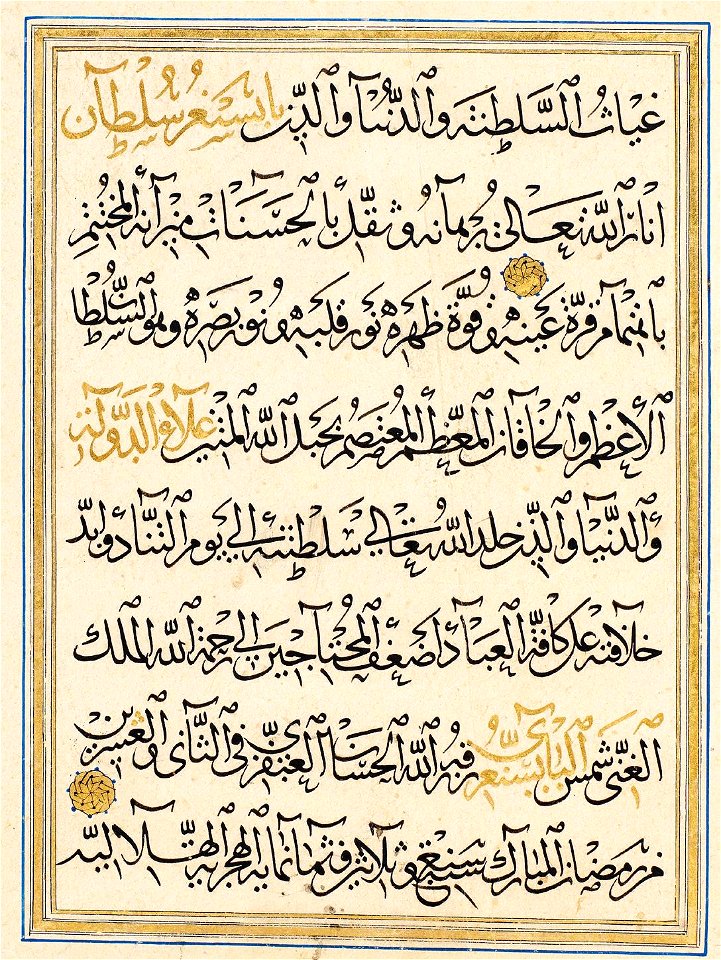 غياث السلطنة والدنيا والدين بايسنغر سلطان
انار الله تعالى برهانه وثقل بالحسنات ميزانه المختتم
بانتمام قرة عينه وقوة ظهره نور قلبه ونور بصره وهو السلطان
الأعظم والخاقان المعظم المعتصم بحبل الله المتين علاء الدولة
والدنيا والدين خلد الله تعالى سلطنته إلى يوم التناد وابد
خلافته على كافة العباد أضعف المحتاجين إلى رحمة الله الملك
الغني شمس البايسنغري في الثاني والعشرين
من رمضان المبارك سنة سبع وثلاثين وثمانمائة الهجرية الهلالية